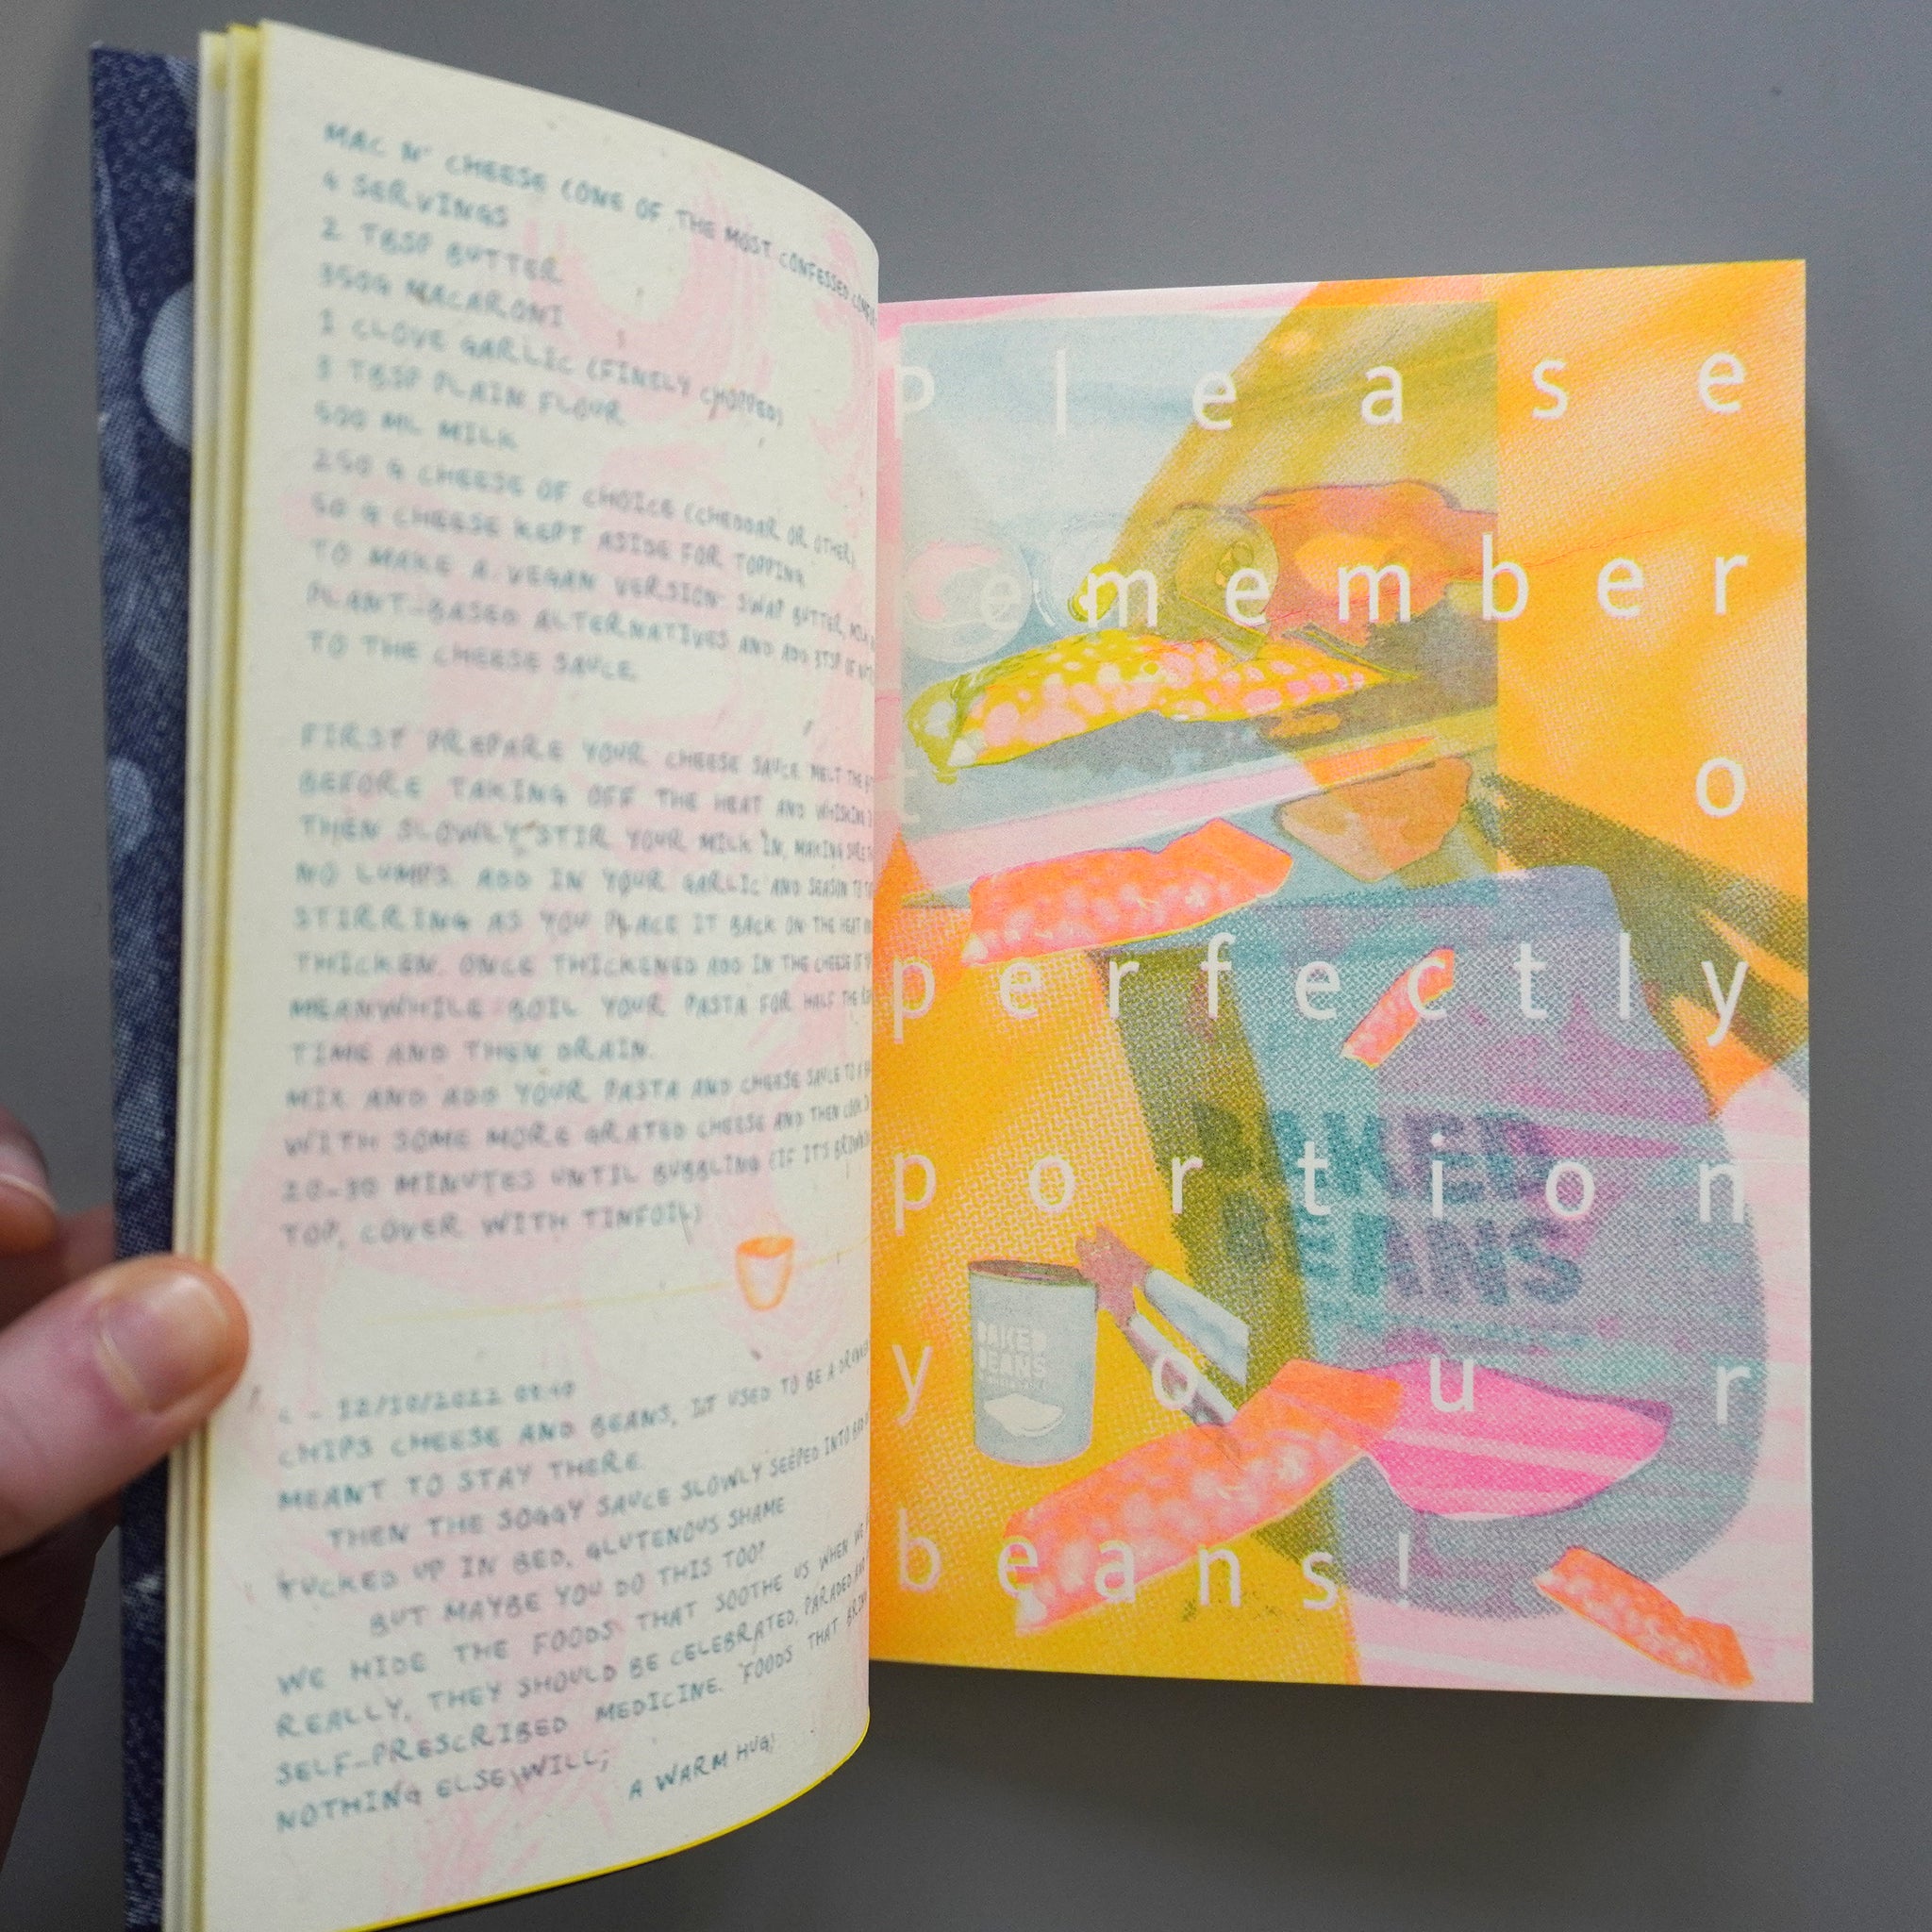 MAC N' CHEESE (ONE OF THE MOST CONFESSED
4 SERVINGS
2 TBSP BUTTER
350G MACARONI
1 CLOVE GARLIC (FINELY CHOPPED)
3 TBSP PLAIN FLOUR
500 ML MILK
250 G CHEESE OF CHOICE (CHEDDAR OR OTHER)
50 G CHEESE KEPT ASIDE FOR TOPPING
TO MAKE A VEGAN VERSION: SWAP BUTTER,
PLANT-BASED ALTERNATIVES AND ADD
TO THE CHEESE SAUCE.
FIRST PREPARE YOUR CHEESE SAUCE MELT THE
BEFORE TAKING OFF THE HEAT AND WHISKING
THEN SLOWLY STIR YOUR MILK IN, MAKING SURE
NO LUMPS. ADD IN YOUR GARLIC AND SEASON TO
STIRRING AS YOU PLACE IT BACK ON THE HEAT
THICKEN. ONCE THICKENED ADD IN THE CHEESE
MEANWHILE BOIL YOUR PASTA FOR HALF THE
TIME AND THEN DRAIN.
MIX AND ADD YOUR PASTA AND CHEESE SAUCE TO A
WITH SOME MORE GRATED CHEESE AND THEN COOK
20-30 MINUTES UNTIL BUBBLING (IF IT'S BROWNING
TOP, COVER WITH TINFOIL)
12/10/2022
CHIPS CHEESE AND BEANS, IT USED TO BE A
MEANT TO STAY THERE
THEN THE SOGGY SAUCE SLOWLY SEEPED INTO
TUCKED UP IN BED, GLUTENOUS SHAME
BUT MAYBE YOU DO THIS TOO?
WE HIDE THE FOODS THAT SOOTHE US WHEN WE
REALLY, THEY SHOULD BE CELEBRATED, PARADED
SELF-PRESCRIBED MEDICINE. FOODS THAT
NOTHING ELSE WILL;
A WARM HUG)
Please
emember
t o
perfectly
portion
your
beans!
BAKED
BEANS
BAKED
BEANS